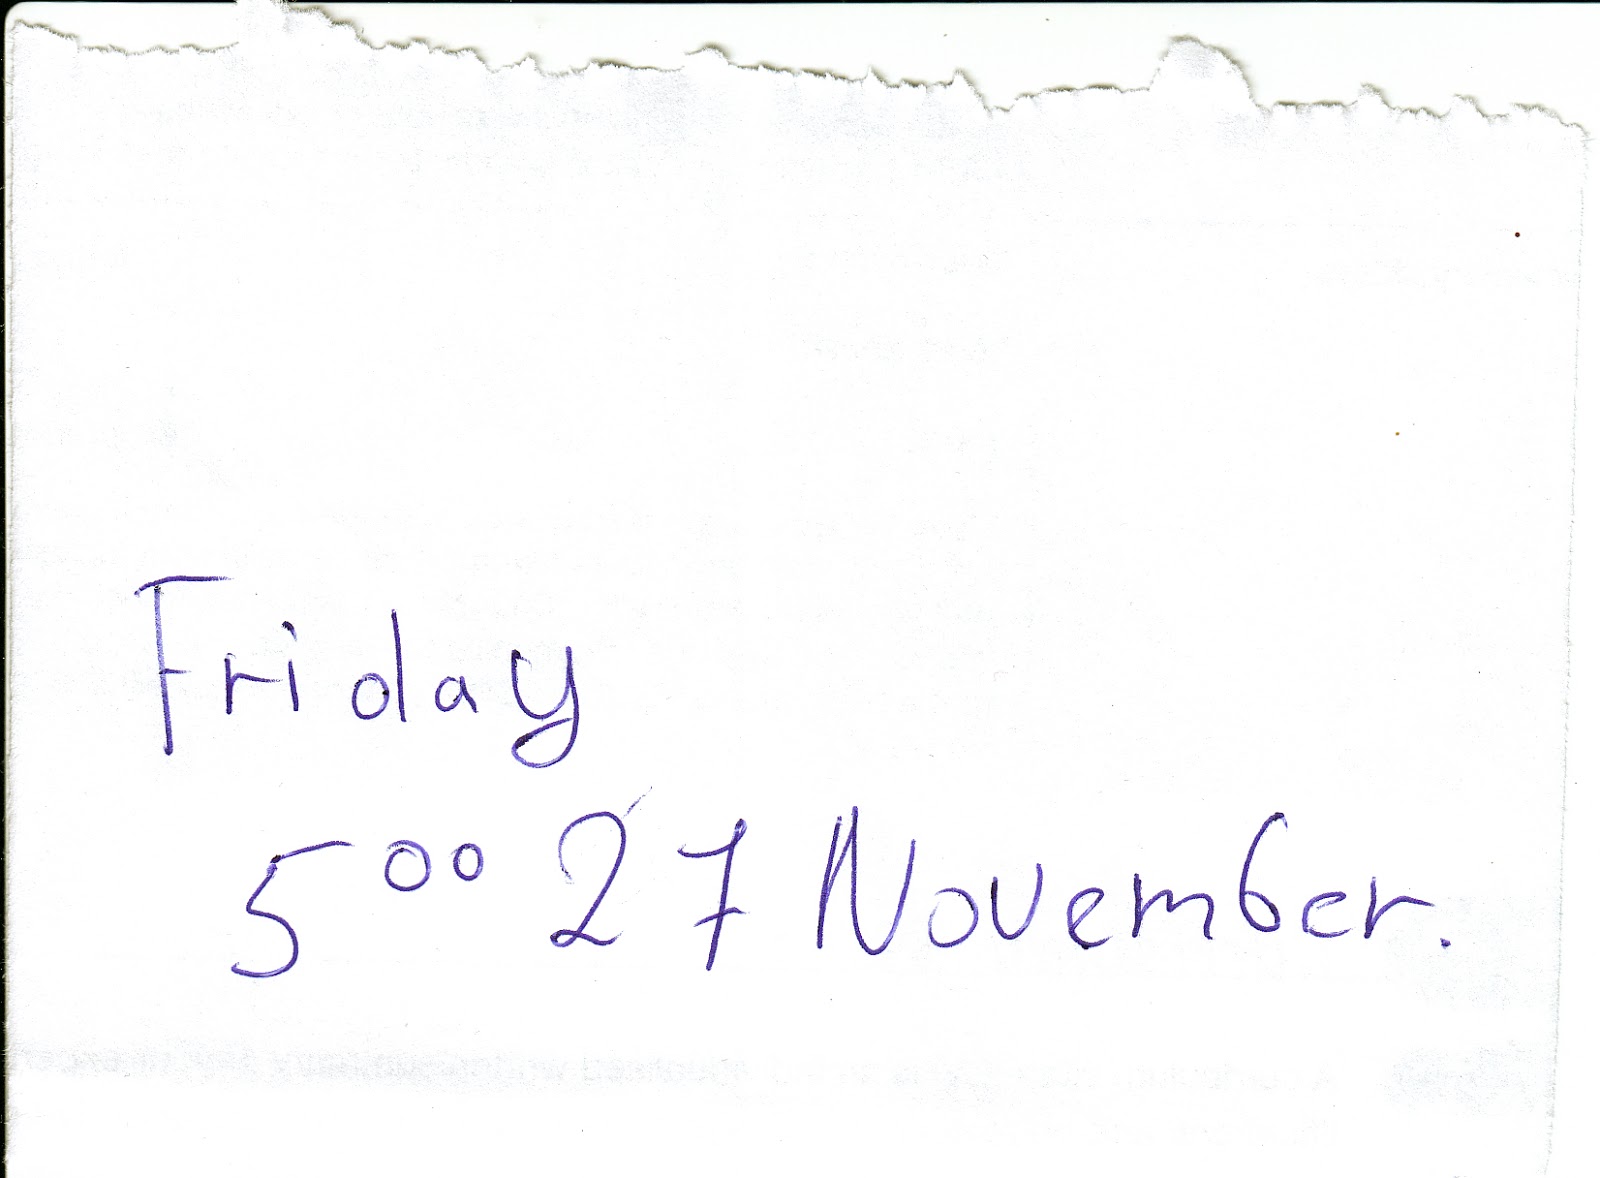 Friday
5⁰⁰ 27 November.